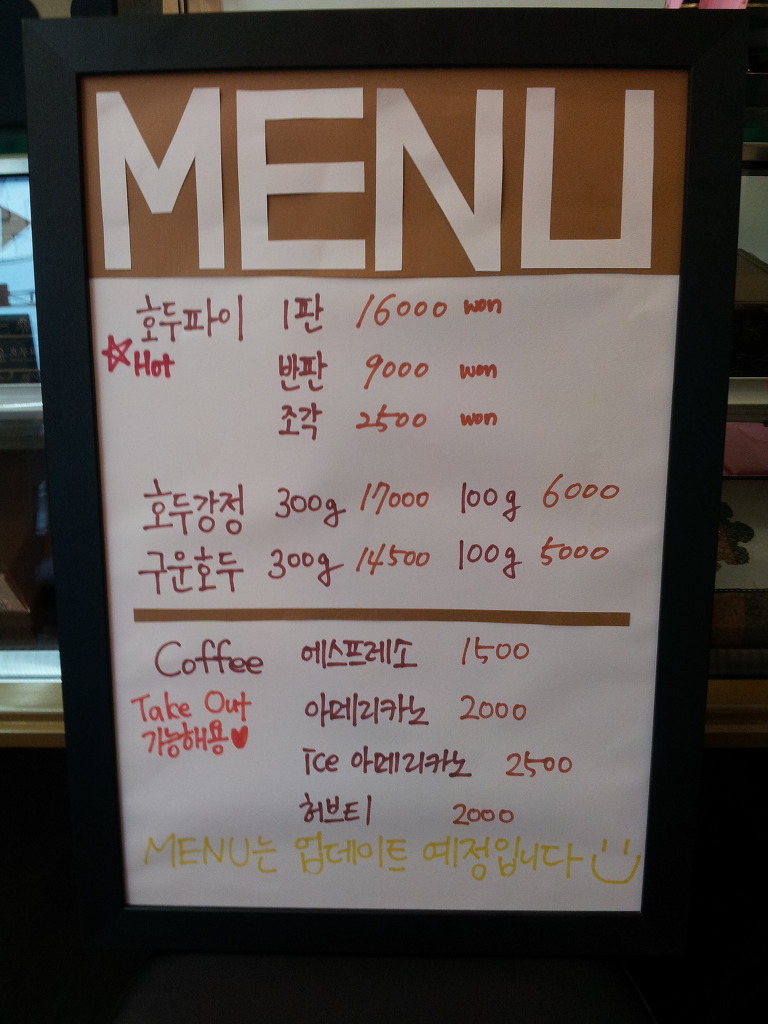 MENU
호두파이 1판 16000 won
☆Hot 반판 9000 won
조각 2500 won
호두강정 300g 17000 100g 6000
구운호두 300g 14500 100g 5000
Coffee 에스프레소 1500
Take Out 아메리카노 2000
가능해용♥
ice 아메리카노 2500
허브티 2000
MENU는 업데이트 예정입니다